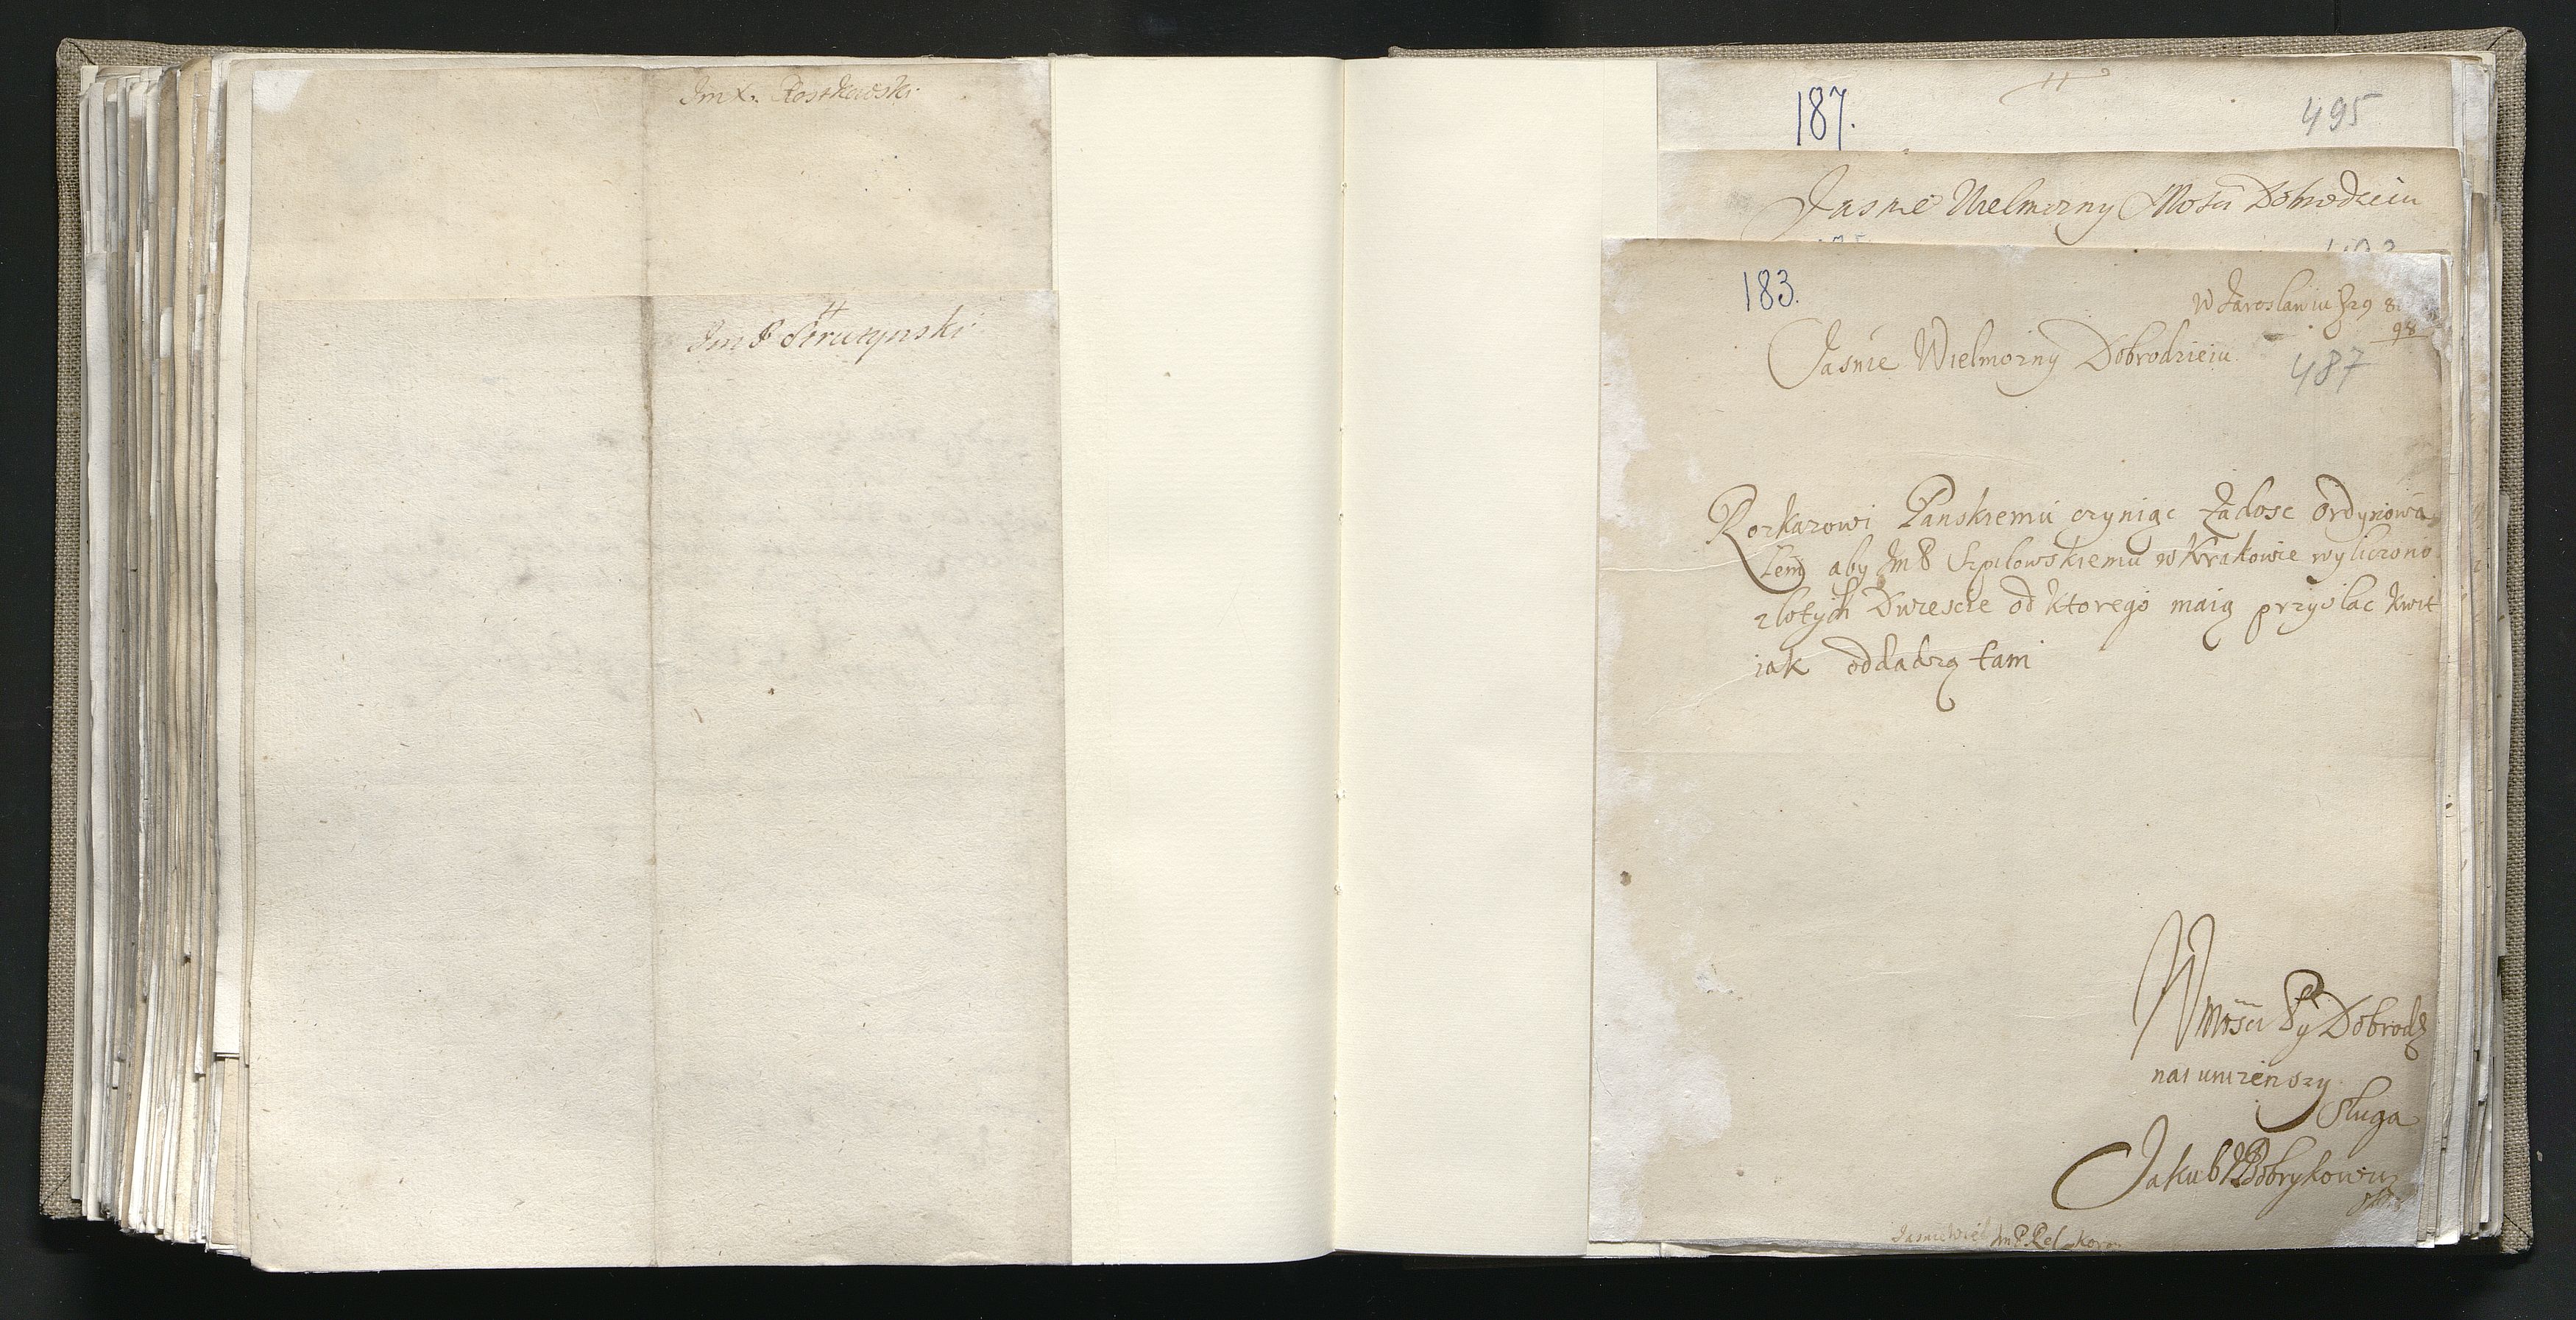 Im X. Rostkowski
Im P Struczynski
187.
495
Jasnie Wielmozny Mosci Dobrodzieiu
183.
W Jaroslawiu 8
98
Jasnie Wielmozny Dobrodzieiu
487
Rozkazowi Panskiemu czyniąc żądosc ordynowa
łem aby Im P Szpilowskiemu w Krakowie wyliczono
złotych Dwiescie od ktorego maią przysłac kwit
iak oddadzą tam
W Mosci Py Dobrodz
nai unizenszy
Sługa
Jakub
Jasnie Wiel Im P Ref koro